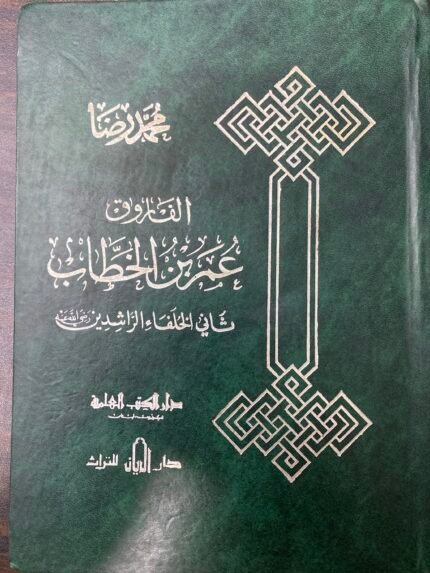 محمد رضا
الفاروق
عمر بن الخطاب
ثاني الخلفاء الراشدين رضي الله عنه
دار الكتب العلمية
بيروت - لبنان
دار الريان للتراث